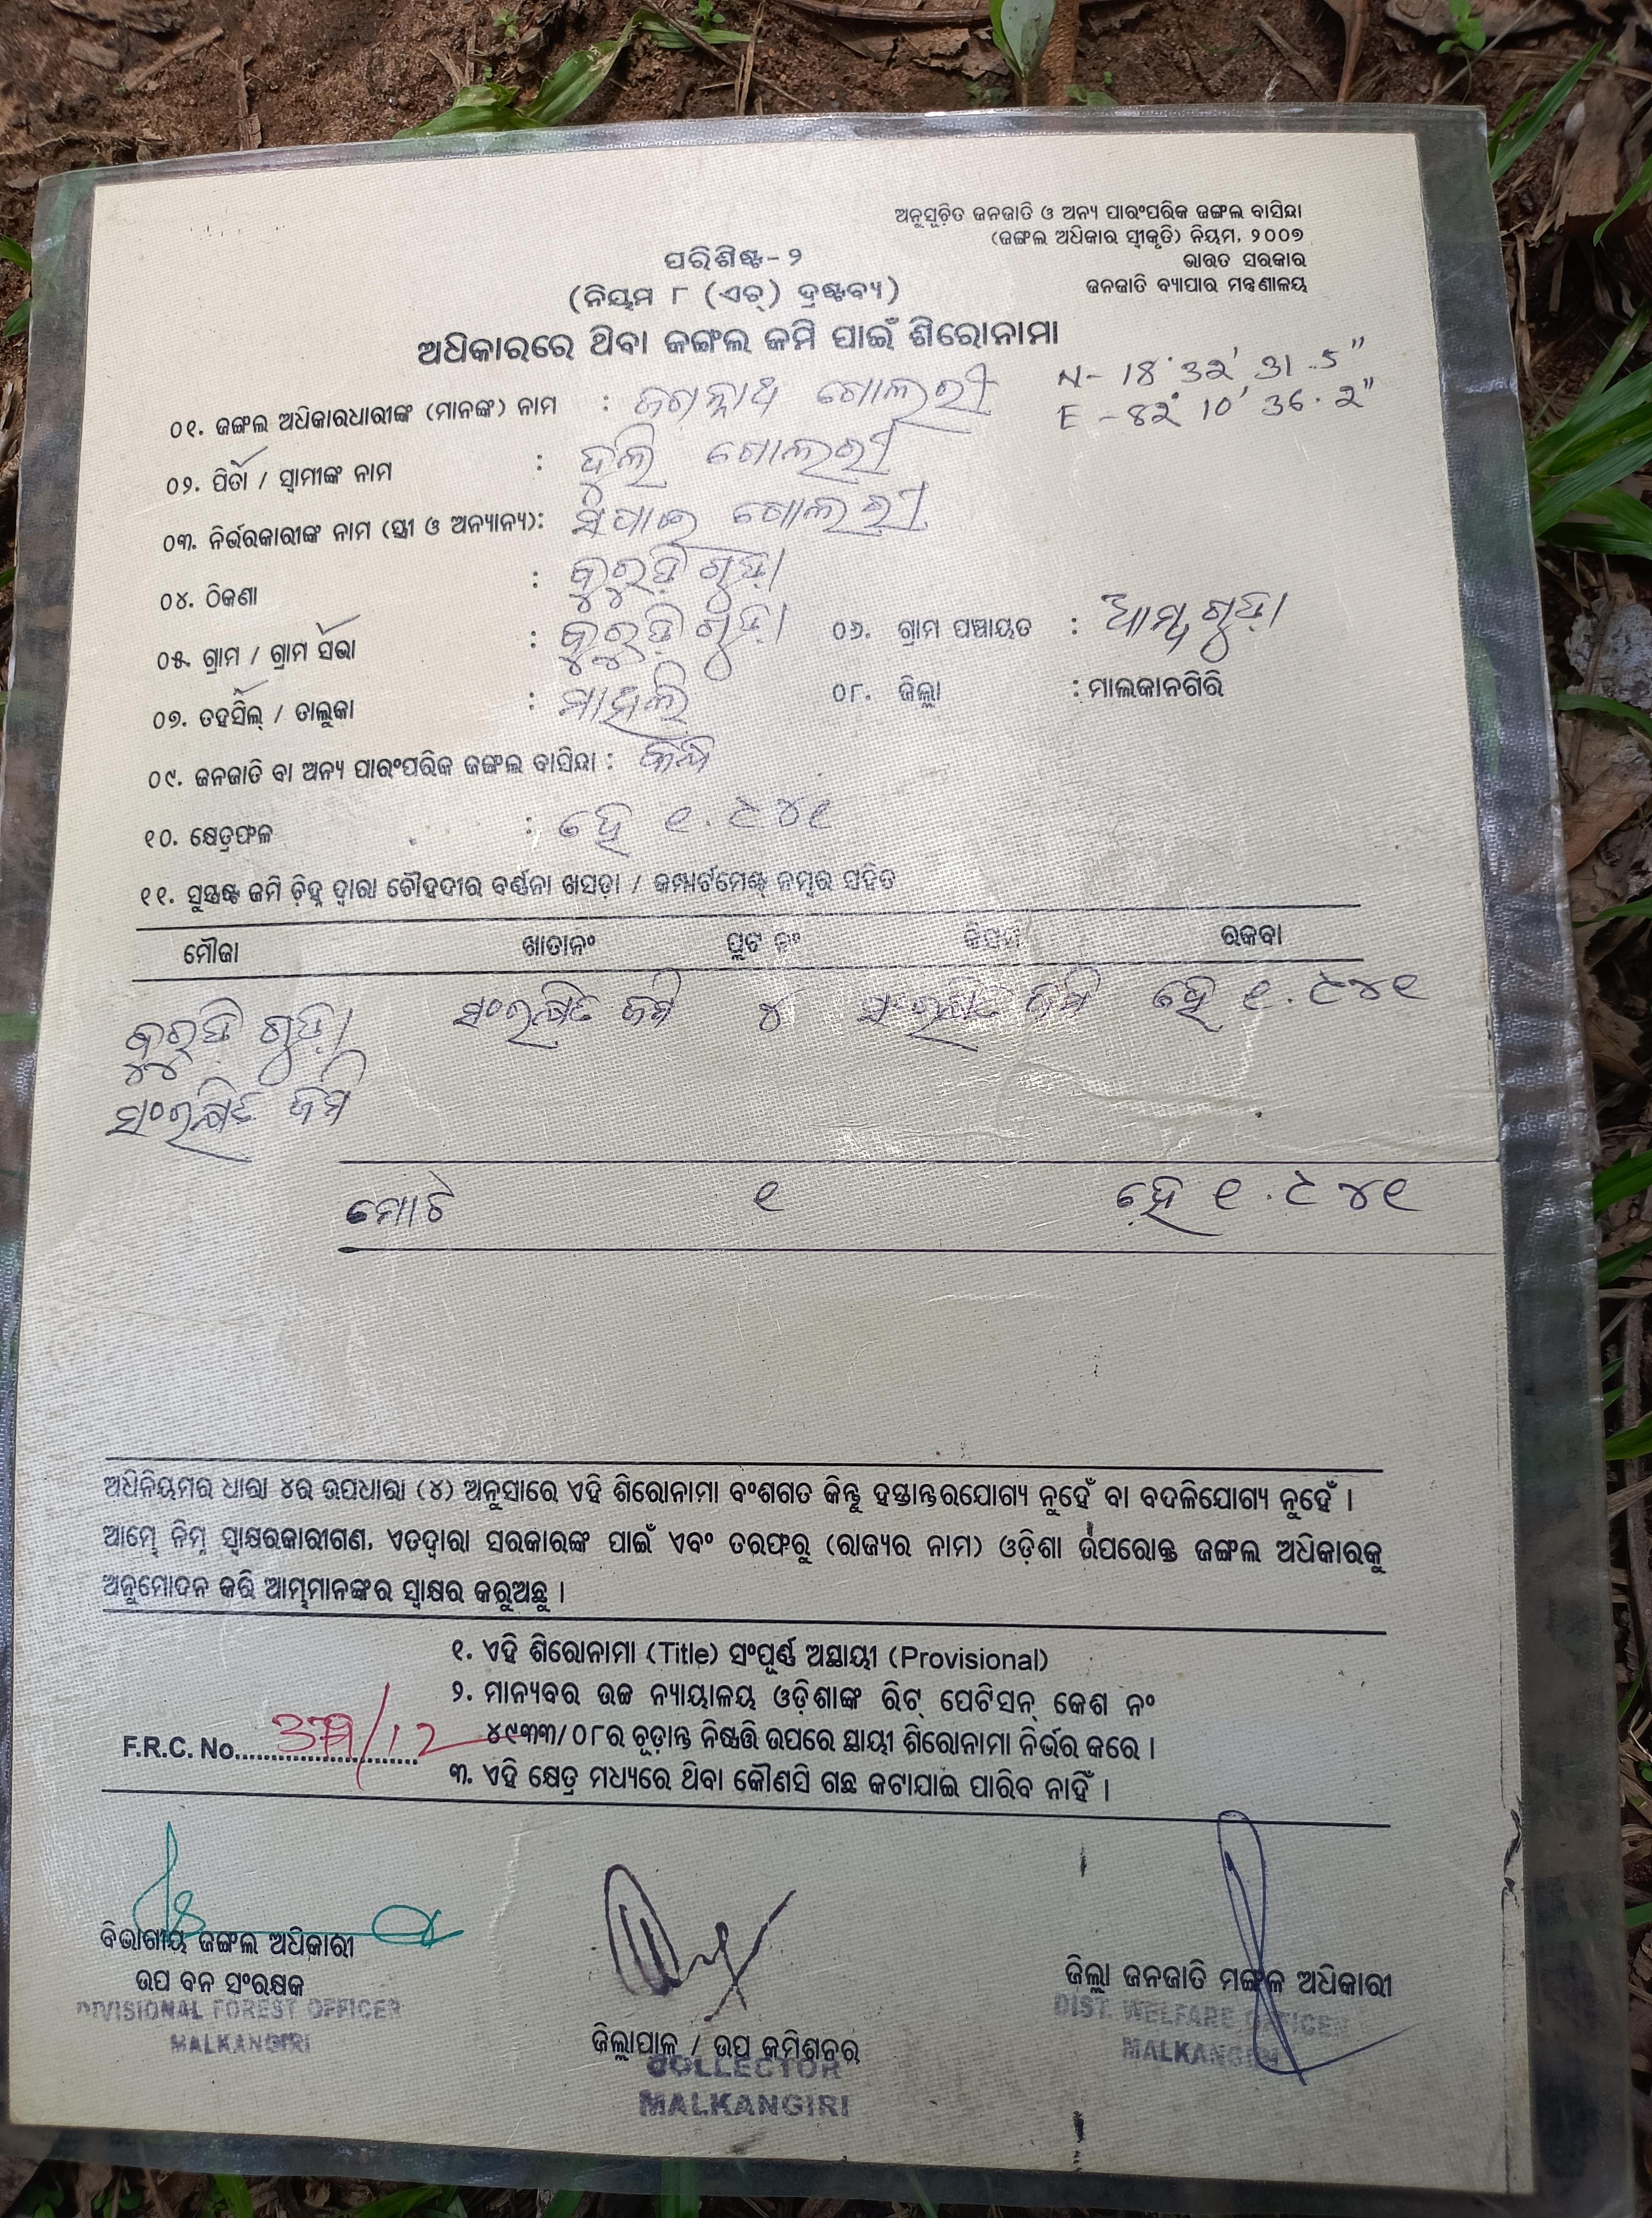 ଅନୁସୂଚିତ ଜନଜାତି ଓ ଅନ୍ୟ ପାରଂପରିକ ଜଙ୍ଗଲ ବାସିନ୍ଦା
(ଜଙ୍ଗଲ ଅଧିକାର ସ୍ୱୀକୃତି) ନିୟମ, ୨୦୦୭
ଭାରତ ସରକାର
ଜନଜାତି ବ୍ୟାପାର ମନ୍ତ୍ରଣାଳୟ
ପରିଶିଷ୍ଟ-୨
(ନିୟମ ୮ (ଏଚ୍) ଦ୍ରଷ୍ଟବ୍ୟ)
ଅଧିକାରରେ ଥିବା ଜଙ୍ଗଲ ଜମି ପାଇଁ ଶିରୋନାମା
N- 18° 32' 31.5"
E - 82° 10' 36.2"
୦୧. ଜଙ୍ଗଲ ଅଧିକାରଧାରୀଙ୍କ (ମାନଙ୍କ) ନାମ : ଜଗନ୍ନାଥ ଗୋଲରୀ
୦୨. ପିତା / ସ୍ୱାମୀଙ୍କ ନାମ : ଦୁଲି ଗୋଲରୀ
୦୩. ନିର୍ଭରକାରୀଙ୍କ ନାମ (ସ୍ତ୍ରୀ ଓ ଅନ୍ୟାନ୍ୟ): ଗୋଲରୀ
୦୪. ଠିକଣା :
୦୫. ଗ୍ରାମ / ଗ୍ରାମ ସଭା : ୦୬. ଗ୍ରାମ ପଞ୍ଚାୟତ : ଆମ୍ବଗୁଡ଼ା
୦୭. ତହସିଲ୍ / ତାଲୁକା : ମାଥିଲି ୦୮. ଜିଲ୍ଲା : ମାଲକାନଗିରି
୦୯. ଜନଜାତି ବା ଅନ୍ୟ ପାରଂପରିକ ଜଙ୍ଗଲ ବାସିନ୍ଦା : କନ୍ଧ
୧୦. କ୍ଷେତ୍ରଫଳ : ହେ ୧.୯୪୧
୧୧. ସୁସ୍ପଷ୍ଟ ଜମି ଚିହ୍ନ ଦ୍ୱାରା ଚୌହଦୀର ବର୍ଣ୍ଣନା ଖସଡ଼ା / କମ୍ପାର୍ଟମେଣ୍ଟ୍ ନମ୍ବର ସହିତ
ମୌଜା ଖାତାନଂ ପ୍ଲଟ ନଂ କିସମ ରକବା
ସଂରକ୍ଷିତ ଜମି ୪ ସଂରକ୍ଷିତ ଜମି ହେ ୧.୯୪୧
ସଂରକ୍ଷିତ ଜମି
ମୋଟ ୧ ହେ ୧.୯୪୧
ଅଧିନିୟମର ଧାରା ୪ର ଉପଧାରା (୪) ଅନୁସାରେ ଏହି ଶିରୋନାମା ବଂଶଗତ କିନ୍ତୁ ହସ୍ତାନ୍ତରଯୋଗ୍ୟ ନୁହେଁ ବା ବଦଳିଯୋଗ୍ୟ ନୁହେଁ ।
ଆମ୍ଭେ ନିମ୍ନ ସ୍ୱାକ୍ଷରକାରୀଗଣ, ଏତଦ୍ୱାରା ସରକାରଙ୍କ ପାଇଁ ଏବଂ ତରଫରୁ (ରାଜ୍ୟର ନାମ) ଓଡ଼ିଶା ଉପରୋକ୍ତ ଜଙ୍ଗଲ ଅଧିକାରକୁ
ଅନୁମୋଦନ କରି ଆମ୍ଭମାନଙ୍କର ସ୍ୱାକ୍ଷର କରୁଅଛୁ ।
୧. ଏହି ଶିରୋନାମା (Title) ସଂପୂର୍ଣ୍ଣ ଅସ୍ଥାୟୀ (Provisional)
୨. ମାନ୍ୟବର ଉଚ୍ଚ ନ୍ୟାୟାଳୟ ଓଡ଼ିଶାଙ୍କ ରିଟ୍ ପେଟିସନ୍ କେଶ ନଂ
୪୯୩୩/୦୮ର ଚୂଡ଼ାନ୍ତ ନିଷ୍ପତ୍ତି ଉପରେ ସ୍ଥାୟୀ ଶିରୋନାମା ନିର୍ଭର କରେ ।
F.R.C. No.
୩. ଏହି କ୍ଷେତ୍ର ମଧ୍ୟରେ ଥିବା କୌଣସି ଗଛ କଟାଯାଇ ପାରିବ ନାହିଁ ।
ବିଭାଗୀୟ ଜଙ୍ଗଲ ଅଧିକାରୀ
ଉପ ବନ ସଂରକ୍ଷକ
DIVISIONAL FOREST OFFICER
MALKANGIRI
ଜିଲ୍ଲାପାଳ / ଉପ କମିଶନର
COLLECTOR
MALKANGIRI
ଜିଲ୍ଲା ଜନଜାତି ମଙ୍ଗଳ ଅଧିକାରୀ
DIST. WELFARE OFFICER
MALKANGIRI